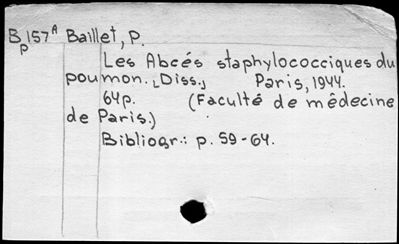 Bp157A Baillet, P.
Les Abcés staphylococciques du
poumon. [Diss.] Paris, 1944.
64p. (Faculté de mêdecine
de Paris.)
Bibliogr.: p. 59-64.